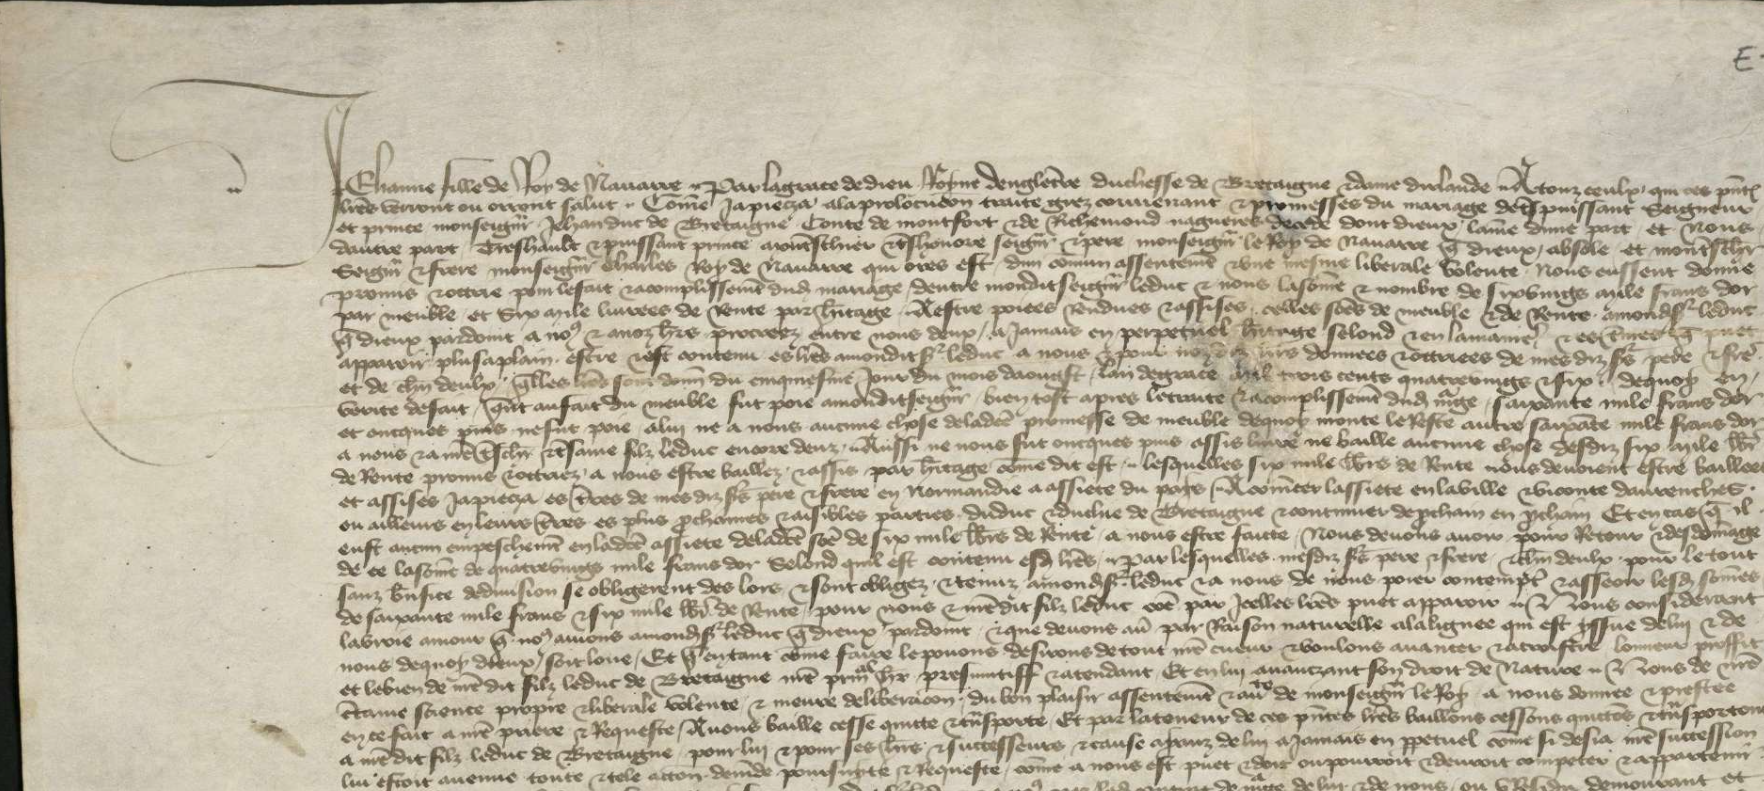 E
Jehanne fille de Roy de Navarre Par la grace de dieu Royne dengleterre duchesse de Bretaigne & dame dirlande A touz ceulx qui ces pntes
lres verront ou orront salut Come Japiecza ala prolocucion traite grez couvenant & promesses du mariage de tspuissant Seigneur
et prince monseignr Jehan duc de Bretaigne Conte de montfort & de Richemond nagueres decede dont dieux lame dune part et Nous
dautre part Treshault & puissant prince & tshonore seignr & pere monseignr le Roy de Navarre q dieux absole et mon tscher
Seignr & frere monseignr Charles Roy de Navarre qui ores est dun comun assentemt & une mesme liberale volente Nous eussent donne
promis & ottrie pour le fait & acomplissemt dud mariage dentre mondit seignr le duc & nous la some & nombre de six vings mile frans dor
par meuble et Six mile livrees de Rente par hitage A estre poiees Rendues & assises celles soes de meuble & de Rente a mond sr le duc
q dieux pardoint a nos & a noz hrs procreez entre nous deux a Jamais en perpetuel hitage selond & en la maniere & es q puet
apparoir plus a plain estre & est contenu es lres a mondit sr le duc a nous & pour nozdiz hrs donnees & ottriees de mesdiz srs pere & frere
et de chun deulx qlles lres sont du cinquiesme Jour du mois daougst lan de grace mil trois cents quatrevings & six dequoy en
verite de fait qnt au fait du meuble fut poie a mondit seignr bien tost apres le traite & acomplissemt dud mage saixante mile frans dor
et oncques puis ne fut poie a lui ne a nous aucune chose de ladte promesse de meuble dequoy monte le Reste autre saixante mile frans dor
a nous & a nre tscher & tsame filz le duc encore deuz Aussi ne nous fut oncques puis assis livre ne baille aucune chose desdiz six mile lbr
de Rente promis & ottriez a nous estre baillez & assis par hitage come dit est lesquelles six mile lbrs de Rente nous devoient estre baillees
et assises Japiecza es tres de mesdiz srs pere & frere en Normandie a assiete du pais A comencer lassiete en la ville & viconte davrenches
ou ailleurs en leurs tres es plus pchaines & aisibles parties du duc & duche de Bretaigne & continuer de pcham en pcham Et en cas q il
eust aucun empeschemt en ladte assiete de ladte soe de six mile lbrs de Rente a nous estre faicte Nous devons avoir pour Retour & desdomage
de ce la some de quatrevings mile frans dor Selond quil est contenu esd lres Par lesquelles mesdiz srs pere & frere & chun deulx pour le tout
sanz benfice de division se obligerent des lors & sont obligez & tenuz a mond sr le duc & a nous de nous poier contempt & asseoir lesd somes
de saixante mile frans & six mile lbr de Rente pour nous & nredit filz le duc coe par Jcelles lres puet apparoir Nous considerant
la vroie amour q nos avions a mond sr le duc q dieux pardoint & que devons avr par Raison naturelle a la lignee qui est yssue de lui & de
nous dequoy dieux soit loue Et q en tant come faire le povons desirons de tout nre cueur & voulons avancer & acroistre lonneur proffit
et le bien de nredit filz le duc de Bretaigne nre hr presumtiff & atendant Et en lui avanczant son droit de Nature Nous de nre
ctaine science propre & liberale volente & meure deliberacon du bon plaisir assentemt & de monseignr le Roy a nous donnee & prestee
en ce fait a nre priere & Requeste Avons baille cesse quicte & tnsporte Et par la teneur de ces pntes lres baillons cessons quictons & tnsportons
a nredit filz le duc de Bretaigne pour lui & pour ses hrs & successeurs & cause aianz de lui a Jamais en ppetuel come si desia nre succession
lui estoit avenue toute & tele action demde poursupte & Requeste come a nous est puet & doit ou pourroit & devroit competer & appartenir
de mage de lui & de nous demourant et